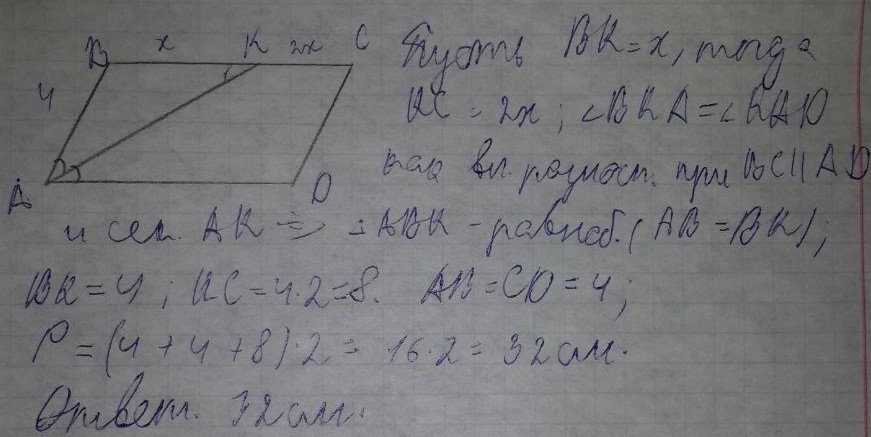 B x K 2x C
4
A D
Пусть BK = x, тогда
KC = 2x; ∠BKA = ∠KAD
как вн. разност. при BC || AD
и сек. AK ⇒ △ABK - равноб. (AB = BK);
BK = 4; KC = 4·2 = 8. AB = CD = 4;
P = (4 + 4 + 8)·2 = 16·2 = 32 см.
Ответ. 32 см.